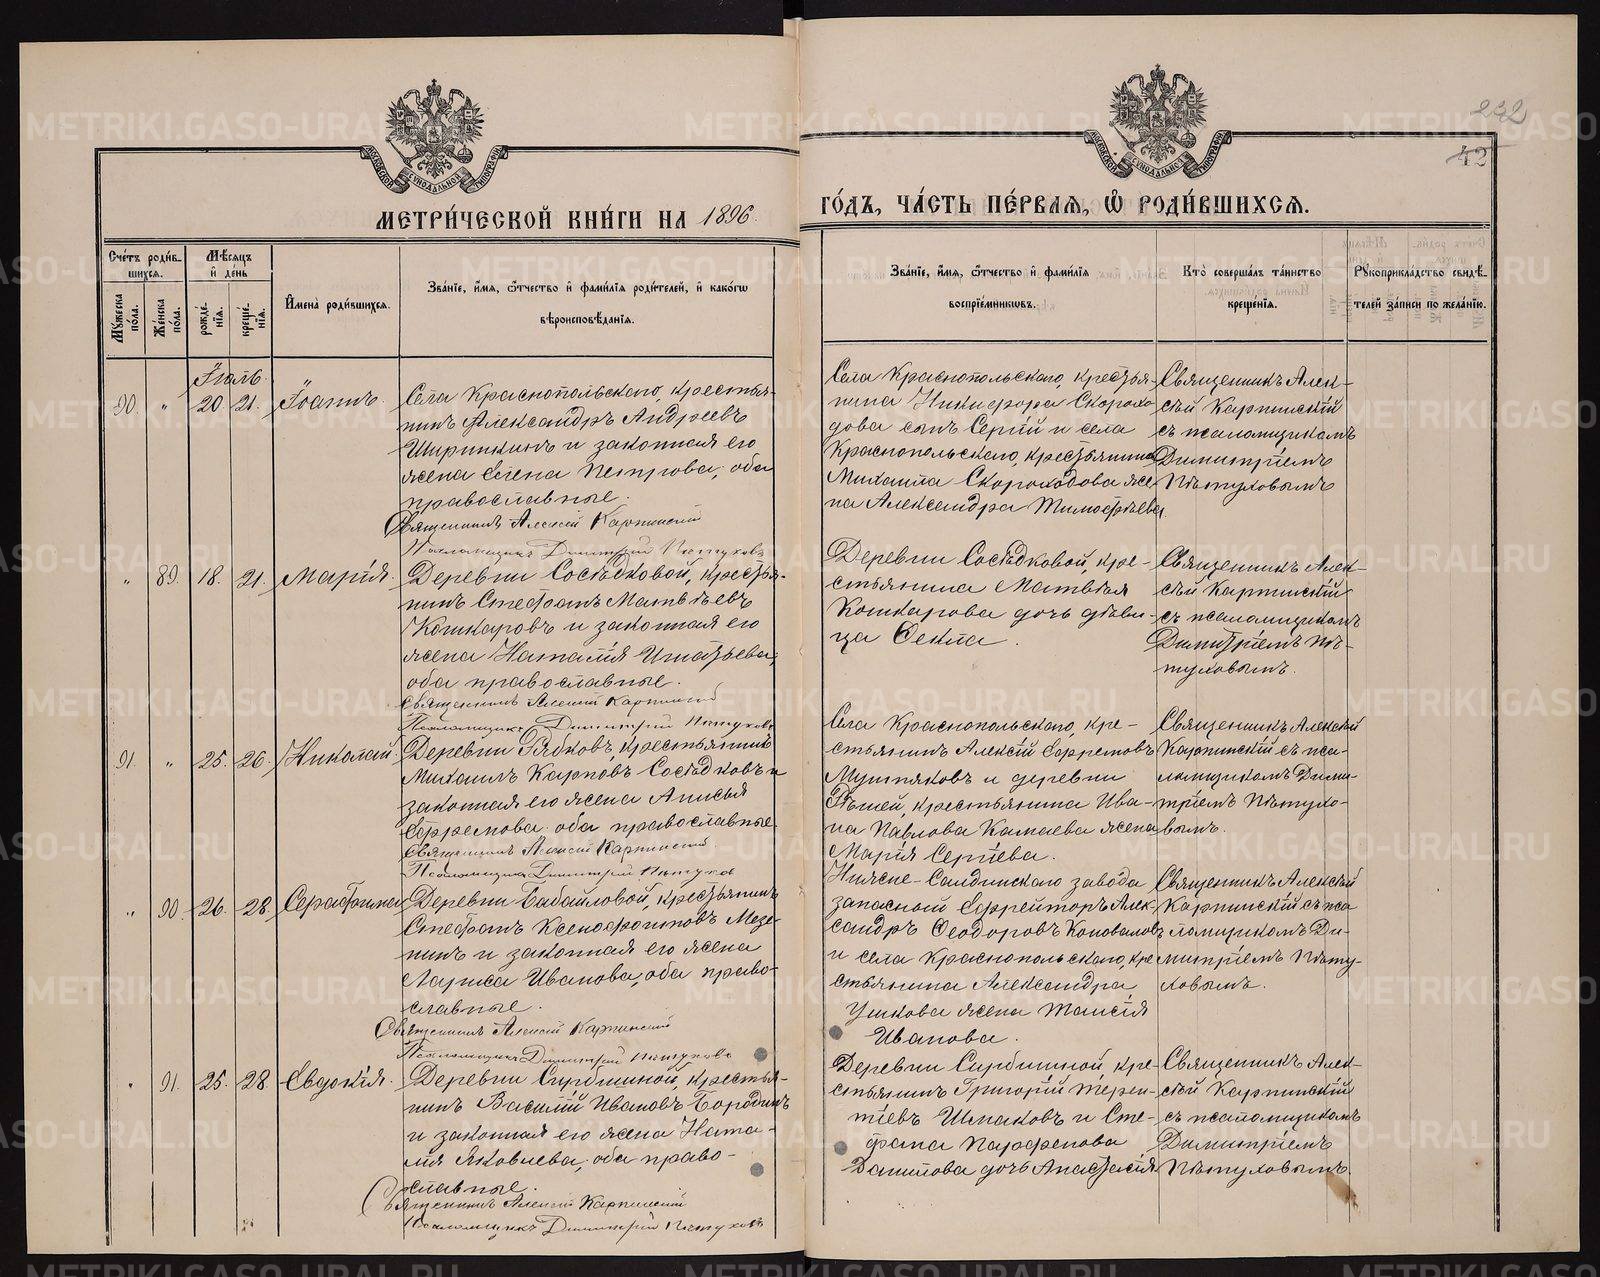 232
42
МОСКОВСКОЙ СѴНОДАЛЬНОЙ ТИПОГРАФІИ
МОСКОВСКОЙ СѴНОДАЛЬНОЙ ТИПОГРАФІИ
МЕТРИ́ЧЕСКОЙ КНИ́ГИ НА 1896 ГО́ДЪ, ЧА́СТЬ ПЕ́РВАЯ, Ѡ҆ РОДИ́ВШИХСЯ.
Сче́тъ роди́в-
шихся.
Мѣ́сяцъ
и҆ де́нь
Мꙋ́жеска по́ла.
Же́нска по́ла.
рожде́-нїя.
креще́-нїя.
И҆мена̀ роди́вшихся.
Зва́нїе, и҆́мя, ѻ҆́тчество и҆ фами́лїя роди́телей, и҆ како́гѡ
вѣроисповѣ́данїя.
Зва́нїе, и҆́мя, ѻ҆́тчество и҆ фами́лїя
воспрїе́мникѡвъ.
Кто̀ соверша́лъ та́инство
креще́нїя.
Рꙋкоприкла́дство свидѣ́-
телей за́писи по жела́нїю.
Іюль
90. „ 20 21. Іоаннъ.
Села Краснопольскаго, крестья-
нинъ Александръ Андреевъ
Ширинкинъ и законная его
жена Елена Петрова, оба
православные.
Священникъ Алексій Карпинский
Псаломщикъ Димитрій Пѣтуховъ
Села Краснопольскаго, крестья-
нина Никифора Скорохо
дова сынъ Сергій и села
Краснопольскаго, крестьянина
Михаила Скороходова же
на Александра Тимофѣева
Священникъ Алек-
сѣй Карпинскій
съ псаломщикомъ
Димитріемъ
Пѣтуховымъ
„ 89. 18. 21. Марія.
Деревни Сосѣдковой, крестья-
нинъ Стефанъ Матвѣевъ
Кошкаровъ и законная его
жена Наталія Игнатьева,
оба православные.
Священникъ Алексій Карпинскій
Псаломщикъ Димитрій Пѣтуховъ
Деревни Сосѣдковой, кре-
стьянина Матвѣя
Кошкарова дочь дѣви-
ца Ѳекла.
Священникъ Алек-
сѣй Карпинскій
съ псаломщикомъ
Димитріемъ Пѣ-
туховымъ.
91. „ 25. 26. Николай
Деревни Рябковъ, крестьянинъ
Михаилъ Карповъ Сосѣдковъ и
законная его жена Анисья
Ефремова. оба православные
Священникъ Алексій Карпинскій
Псаломщикъ Димитрій Пѣтухов
Села Краснопольскаго, кре-
стьянинъ Алексѣй Ефремовъ
и деревни
крестьянина Ива-
на Павлова Камаева жена
Марія Сергіева.
Священникъ Алексѣй
Карпинскій съ пса-
ломщикомъ Дими-
тріемъ Пѣтухо-
вымъ.
„ 90. 26. 28. Серафима
Деревни Бабайловой, крестьянинъ
Стефанъ Ксенофонтовъ Мезе-
нинъ и законная его жена
Лариса Иванова, оба право-
славные.
Священникъ Алексій Карпинскій
Псаломщикъ Димитрій Пѣтуховъ
Нижне-Салдинскаго завода
запасный Ефрейторъ Алек-
сандръ Ѳеодоровъ Коноваловъ
и села Краснопольскаго, кре
стьянина Александра
Ушкова жена Таисія
Иванова.
Священникъ Алексѣй
Карпинскій съ пса
ломщикомъ Ди-
митріемъ Пѣту-
ховымъ.
„ 91. 25. 28. Евдокія.
Деревни крестья-
нинъ Василій Ивановъ Бородинъ
и законная его жена Ната-
лія Яковлева, оба право-
славные.
Священникъ Алексій Карпинскій
Псаломщикъ Димитрій Пѣтуховъ
Деревни кре-
стьянинъ Григорій Терен-
тіевъ Шмаковъ и Сте-
фана Парфенова
Данилова дочь Анастасія
Священникъ Алек-
сѣй Карпинскій
съ псаломщикомъ
Димитріемъ
Пѣтуховымъ.
METRIKI.GASO-URAL.RU